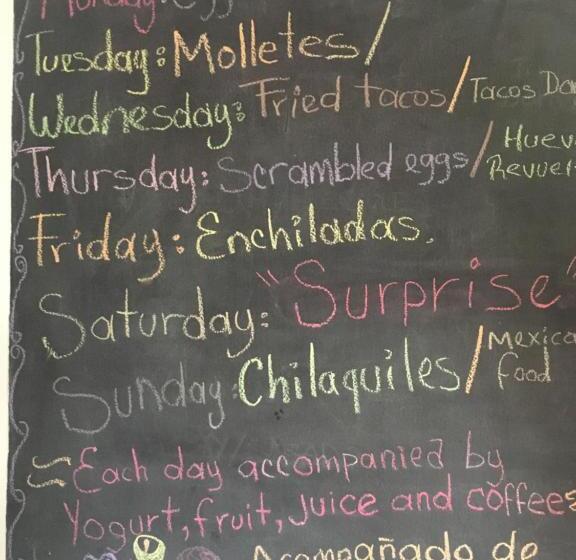 Monday:
Tuesday: Molletes/
Wednesday: Fried tacos/Tacos Do
Thursday: Scrambled eggs/Huev
Revuel
Friday: Enchiladas.
Saturday: "Surprise"
Sunday: Chilaquiles/Mexica
food
~ Each day accompanied by
Yogurt, fruit, Juice and coffees
Acompañado de